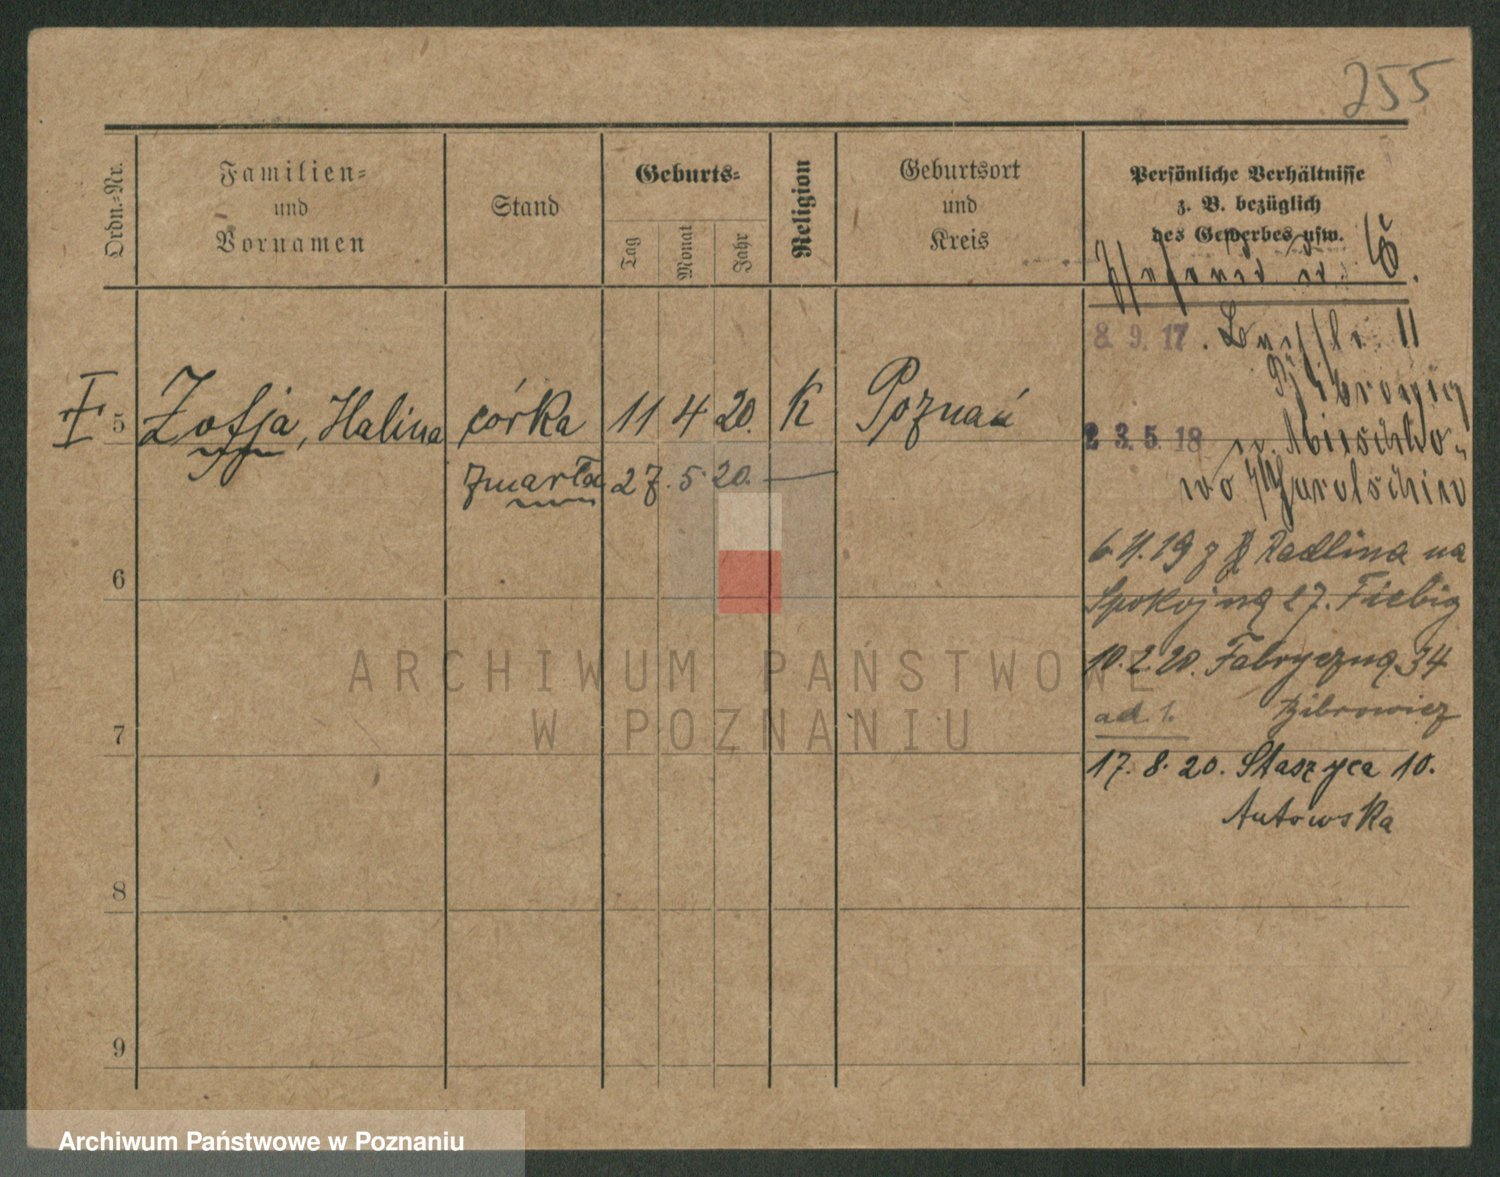 255
Ordn.-Nr.
Familien-
und
Vornamen
Stand
Geburts-
Tag
Monat
Jahr
Religion
Geburtsort
und
Kreis
Persönliche Verhältnisse
z. B. bezüglich
des Gewerbes usw.
8. 9. 17.
11
5 Zofja, Halina córka 11 4 20. K Poznań
23. 5. 18
zmarła 27. 5. 20. —
6. 11. 19 z Radlina na
Spokojną 27. Fiebig
6
10. 2. 20. Fabryczną 34
ad. 1. Bibrowicz
7
17. 8. 20. Staszyca 10.
8
9
ARCHIWUM PAŃSTWOWE
W POZNANIU
Archiwum Państwowe w Poznaniu